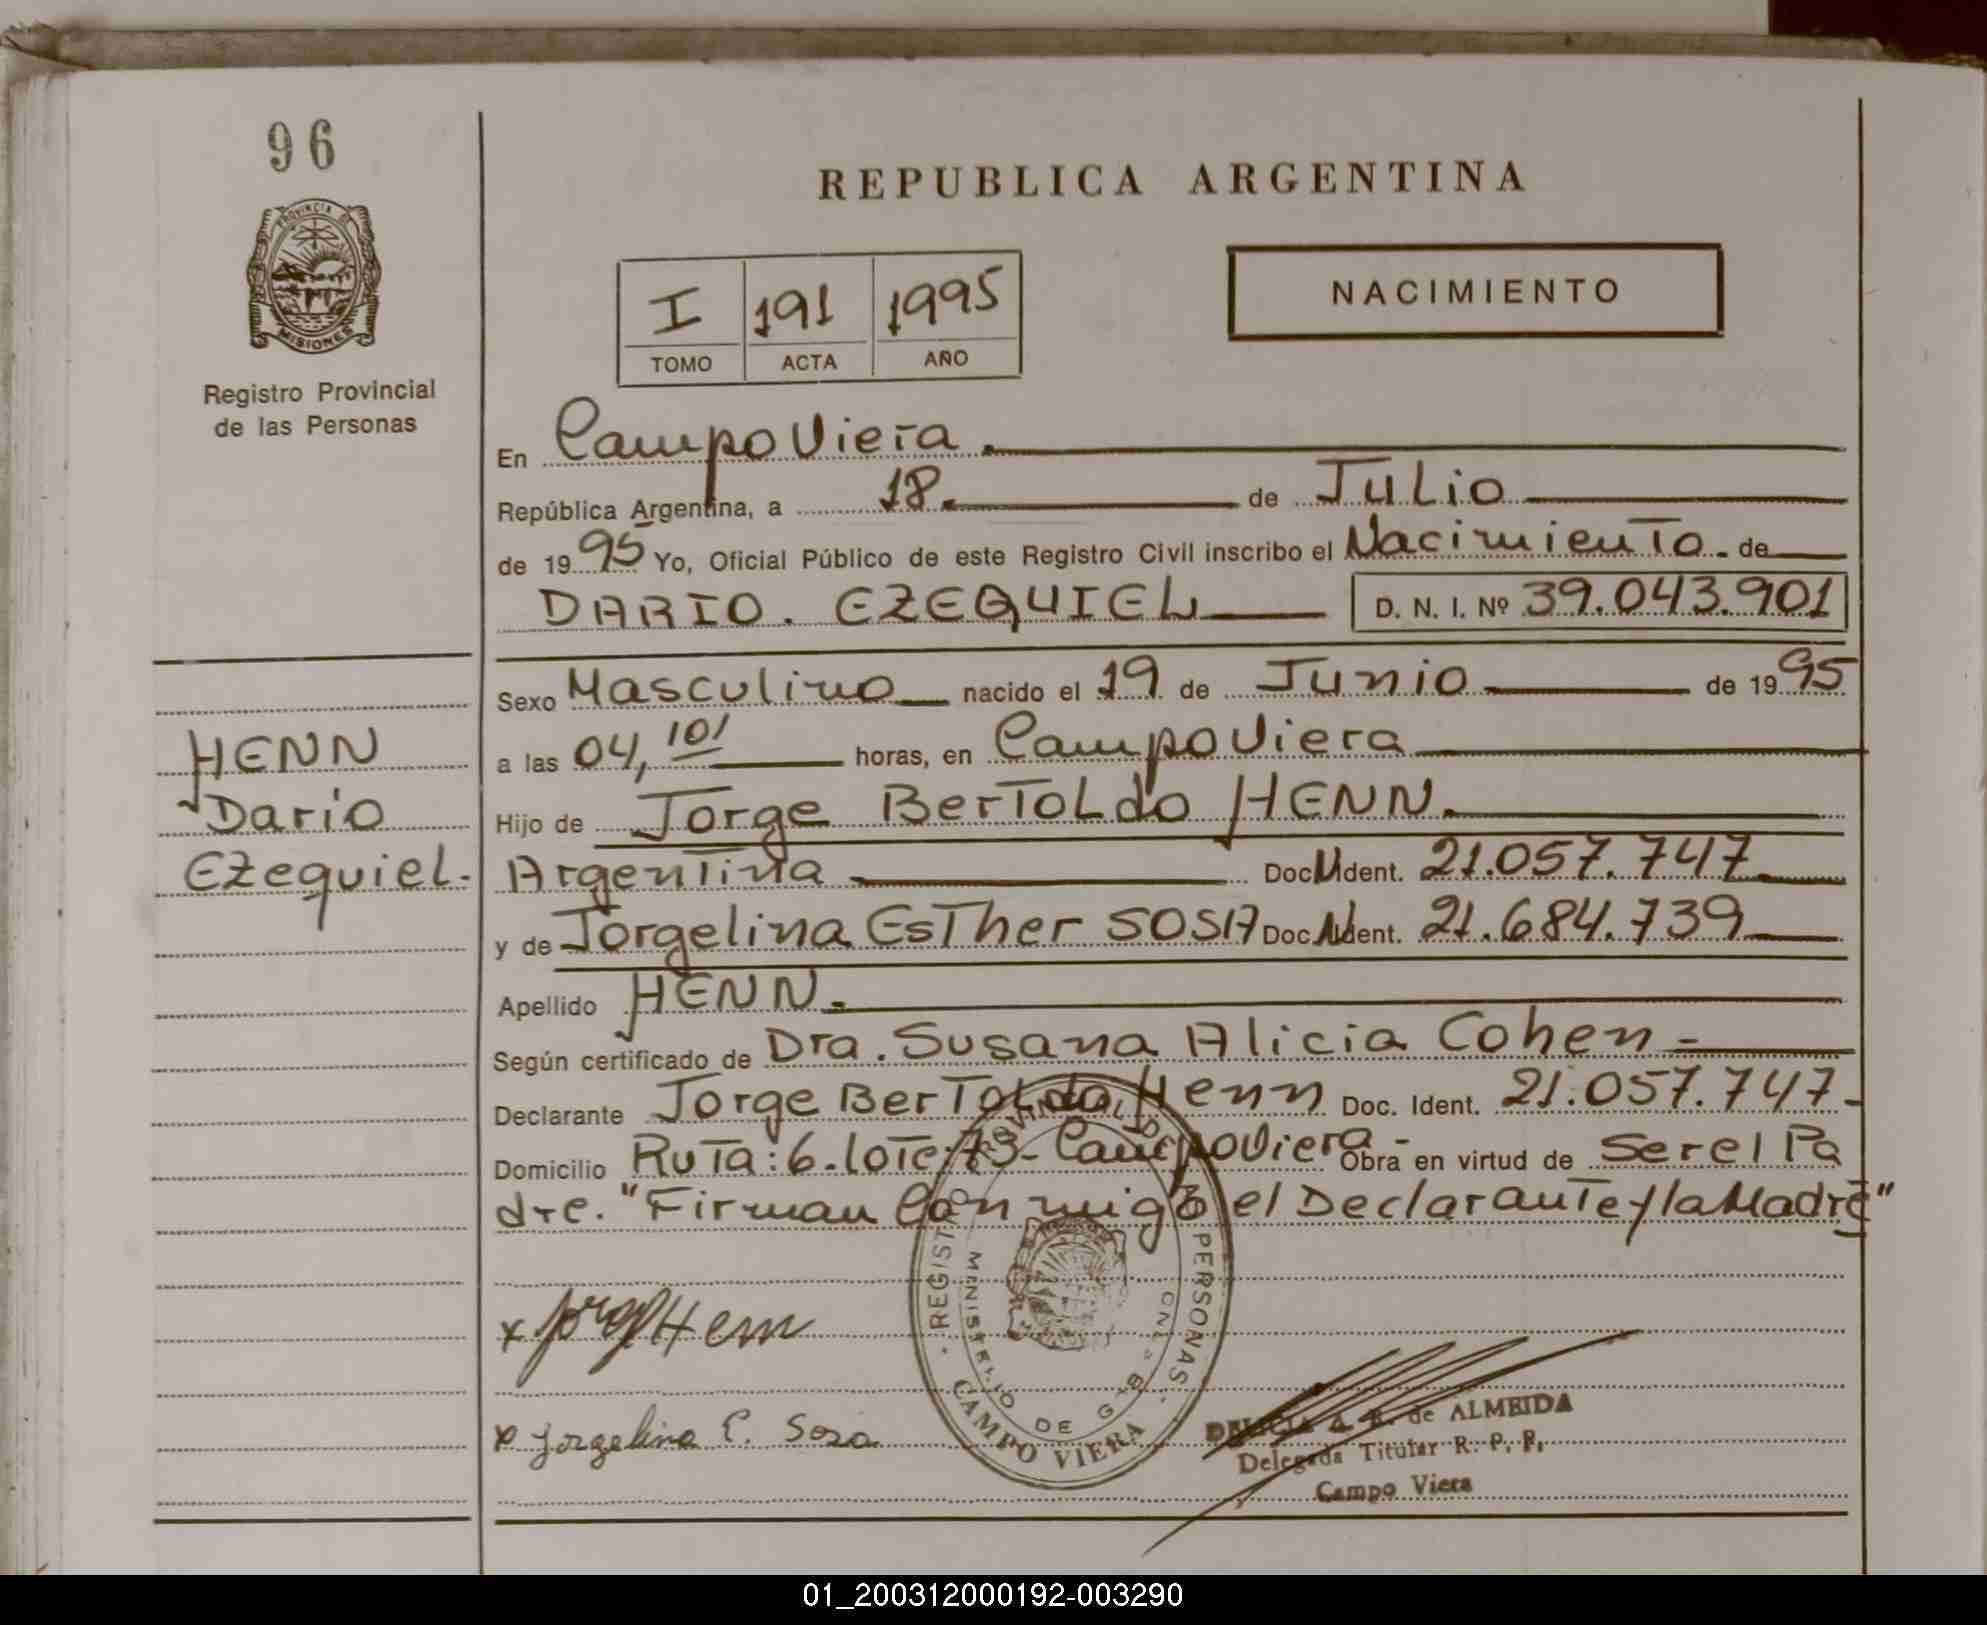 96
PROVINCIA DE
MISIONES
Registro Provincial
de las Personas
REPUBLICA ARGENTINA
I 191 1995
TOMO ACTA AÑO
NACIMIENTO
En Campo Viera.
República Argentina, a 18. de Julio
de 1995 Yo, Oficial Público de este Registro Civil inscribo el Nacimiento. de
DARIO. EZEQUIEL D. N. I. Nº 39.043.901
Sexo Masculino nacido el 19 de Junio de 1995
a las 04,10' horas, en Campo Viera
Hijo de Jorge Bertoldo HENN.
Argentina Doc. Ident. 21.057.747
y de Jorgelina Esther SOSA Doc. Ident. 21.684.739
Apellido HENN.
Según certificado de Dra. Susana Alicia Cohen -
Declarante Jorge Bertoldo Henn Doc. Ident. 21.057.747-
Domicilio Ruta: 6. lote: 73- Campo Viera - Obra en virtud de Ser el Pa
dre. "Firman Con migo el Declarante y la Madre"
HENN
Dario
Ezequiel.
x Jorge Henn
x Jorgelina E. Sosa
REGISTRO PROVINCIAL DE PERSONAS
MINISTERIO DE G
CAMPO VIERA
de ALMEIDA
Delegada Titular R. P. P.
Campo Viera
01_200312000192-003290